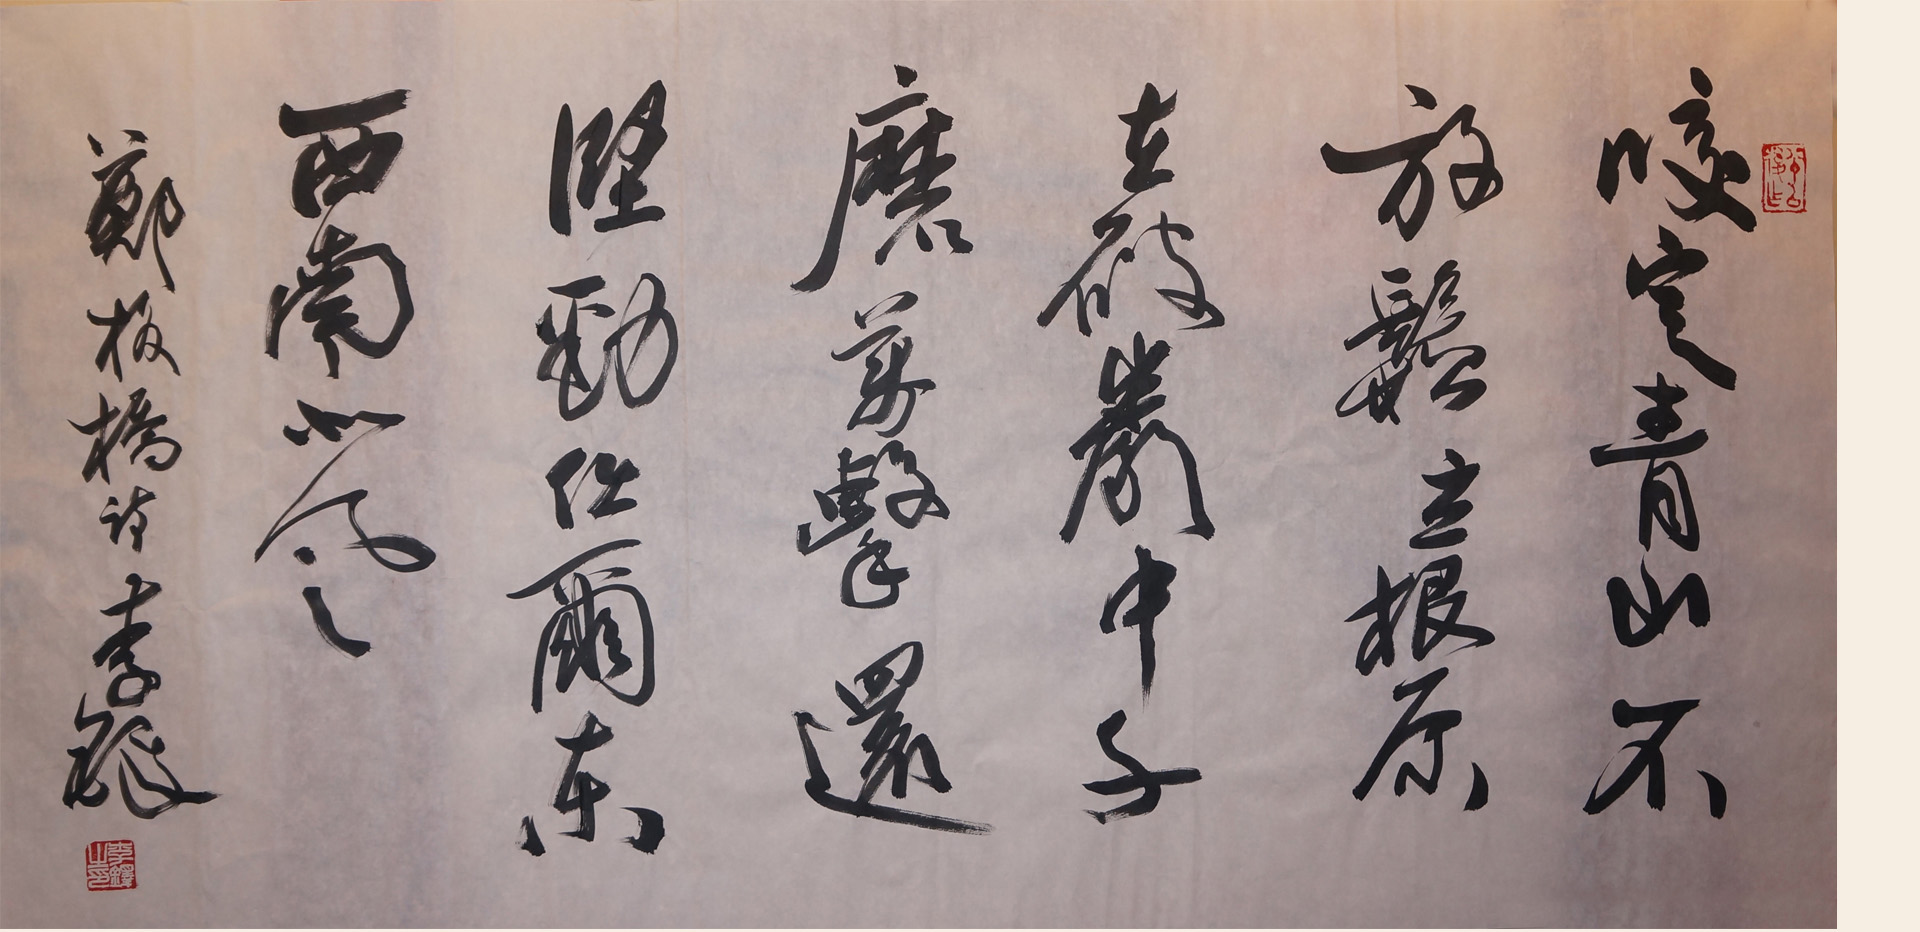 咬定青山不
放鬆立根原
在破巖中千
磨萬擊還
堅勁任爾東
西南北風
鄭板橋詩 李鐸
李鐸之印